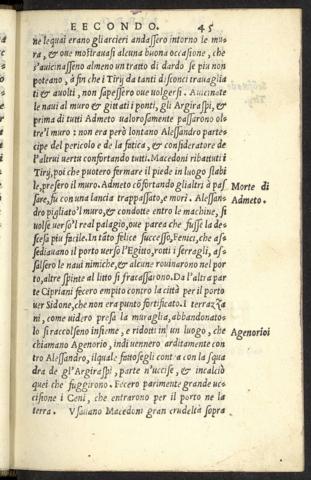 EECONDO. 45
ne lequai erano gli arcieri andassero intorno le mu=
ra, & oue mostrauasi alcuna buona occasione, che
s'auicinassero almeno un tratto di dardo se piu non
poteano, à fin che i Tirij da tanti disconci trauaglia
ti & auolti, non sapessero oue uolgersi. Auicinate
le naui al muro & gittati i ponti, gli Argiraspi, &
prima di tutti Admeto ualorosamente passarono ol=
tre'l muro: non era però lontano Alessandro parte=
cipe del pericolo e de la fatica, & consideratore de
l'altrui uertu confortando tutti. Macedoni ributtati i
Tirij, poi che puotero fermare il piede in luogo stabi
le, presero il muro. Admeto cõfortando gli altri à pas=
sare, fu con una lancia trappassato, e morì. Alessan=
dro pigliato'l muro, & condotte entro le machine, si
uolse uerso'l real palagio, oue parea che fusse la di=
scesa piu facile. In tãto felice successo, Fenici, che as=
sediauano il porto uerso l'Egitto, rotti i serragli, as=
salsero le naui nimiche, & alcune rouinarono nel por=
to, altre spinte al litto si fracassarono. Da l'altra par
te Cipriani fecero empito contro la città per il porto
uer Sidone, che non era punto fortificato. I terrazza
ni, come uidero presa la muraglia, abbandonato=
lo si raccolseno insieme, e ridotti in un luogo, che
chiamano Agenorio, indi uennero arditamente con
tro Alessandro, il quale fattosegli contra con la squa
dra de gl'Argiraspi, parte n'uccise, & incalciò
quei che fuggirono. Fecero parimente grande uc=
cisione i Ceni, che entrarono per il porto ne la
terra. Vsauano Macedoni gran crudeltà sopra
Morte di
Admeto.
Agenorioi